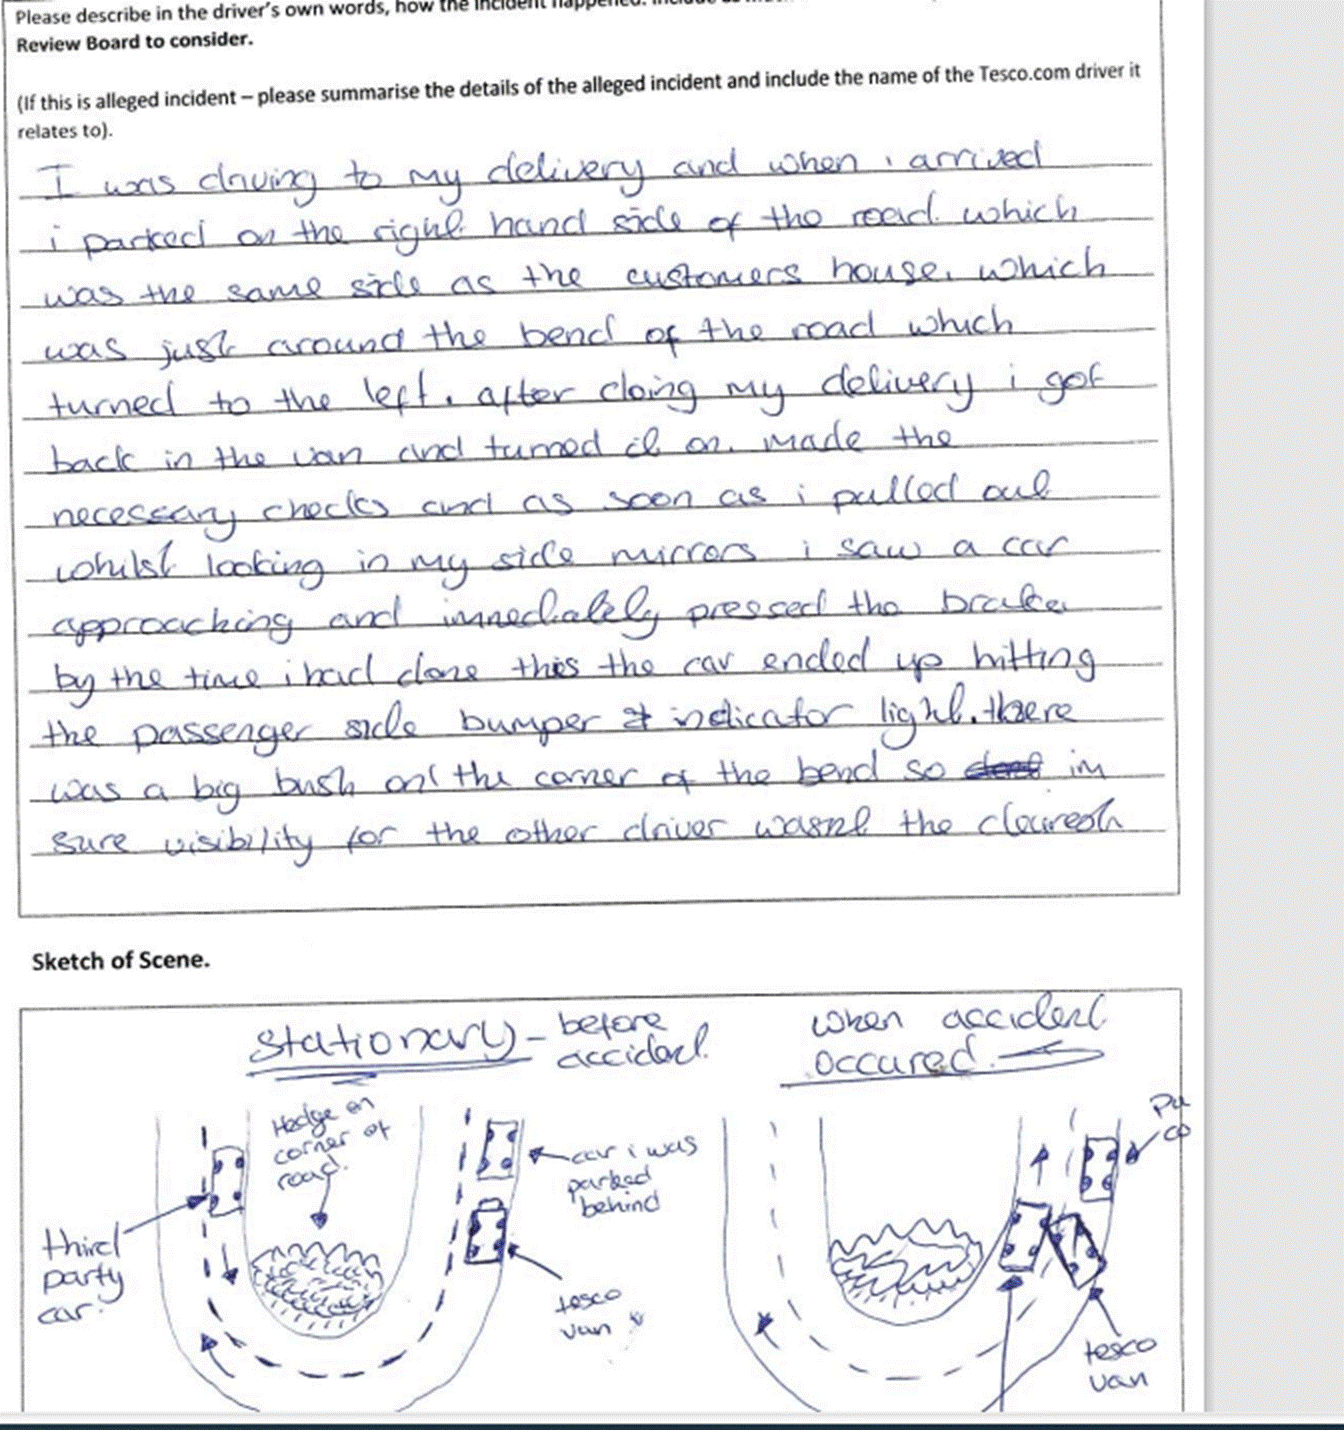 Please describe in the driver's own words, how the incident happened.
Review Board to consider.
(If this is alleged incident – please summarise the details of the alleged incident and include the name of the Tesco.com driver it
relates to).
I was driving to my delivery and when i arrived
i parked on the right hand side of the road which
was the same side as the customers house. which
was just around the bend of the road which
turned to the left. after doing my delivery i got
back in the van and turned it on. made the
necessary checks and as soon as i pulled out
whilst looking in my side mirrors i saw a car
approaching and immediately pressed the brake
by the time i had done this the car ended up hitting
the passenger side bumper & indicator light. there
was a big bush on the corner of the bend so im
sure visibility for the other driver wasnt the clearest
Sketch of Scene.
Stationary - before
accident.
when accident
occured.
Hedge on
corner of
road.
car i was
parked
behind
third
party
car.
tesco
van
tesco
van